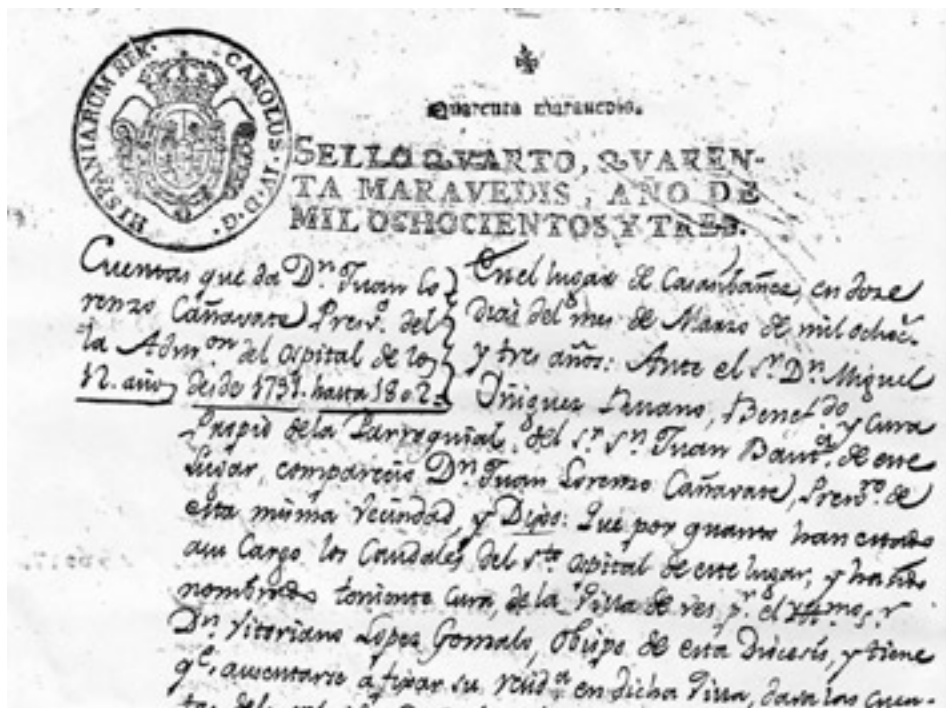 HISPANIARUM REX. CAROLUS. IV. D. G.
Quarenta maravedis.
SELLO QVARTO, QVAREN-
TA MARAVEDIS, AÑO DE
MIL OCHOCIENTOS Y TRES.
Cuentas que da Dn. Juan Lo
renzo Cañavate Presro. del
la Admon. del ospital de los
12. años desde 1791. hasta 1802.
En el lugar de Casasibáñez, en doze
dias del mes de Marzo de mil ochoc.
y tres años: Ante el Sr. Dn. Miguel
Yñiguez, Benefdo. y Cura
Propio de la Parroquial, del Sr. Sn. Juan Baut. de este
Lugar, comparecio Dn. Juan Lorenzo Cañavate, Presvro. de
esta misma vecindad, y Dijo: Que por quanto han estado
a su Cargo los Caudales del Sto. ospital de este lugar, y ha sido
nombrado teniente Cura, de la Villa de ves pr. el Yltmo. Sr.
Dn. Vitoriano Lopez Gonzalo, Obispo de esta Diocesis, y tiene
qe. ausentarse a fixar su resida. en dicha Villa, dara las cuen-